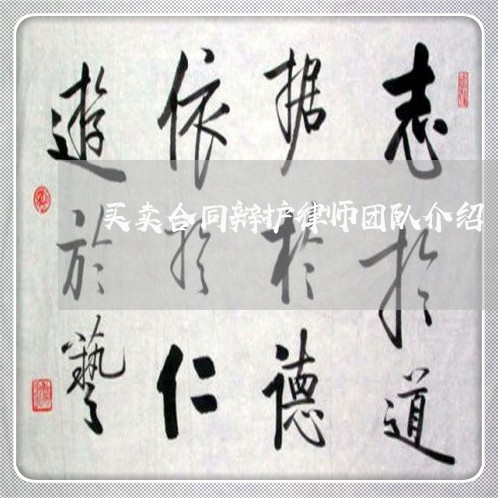 志於道
据於德
依於仁
遊於藝
买卖合同辩护律师团队介绍